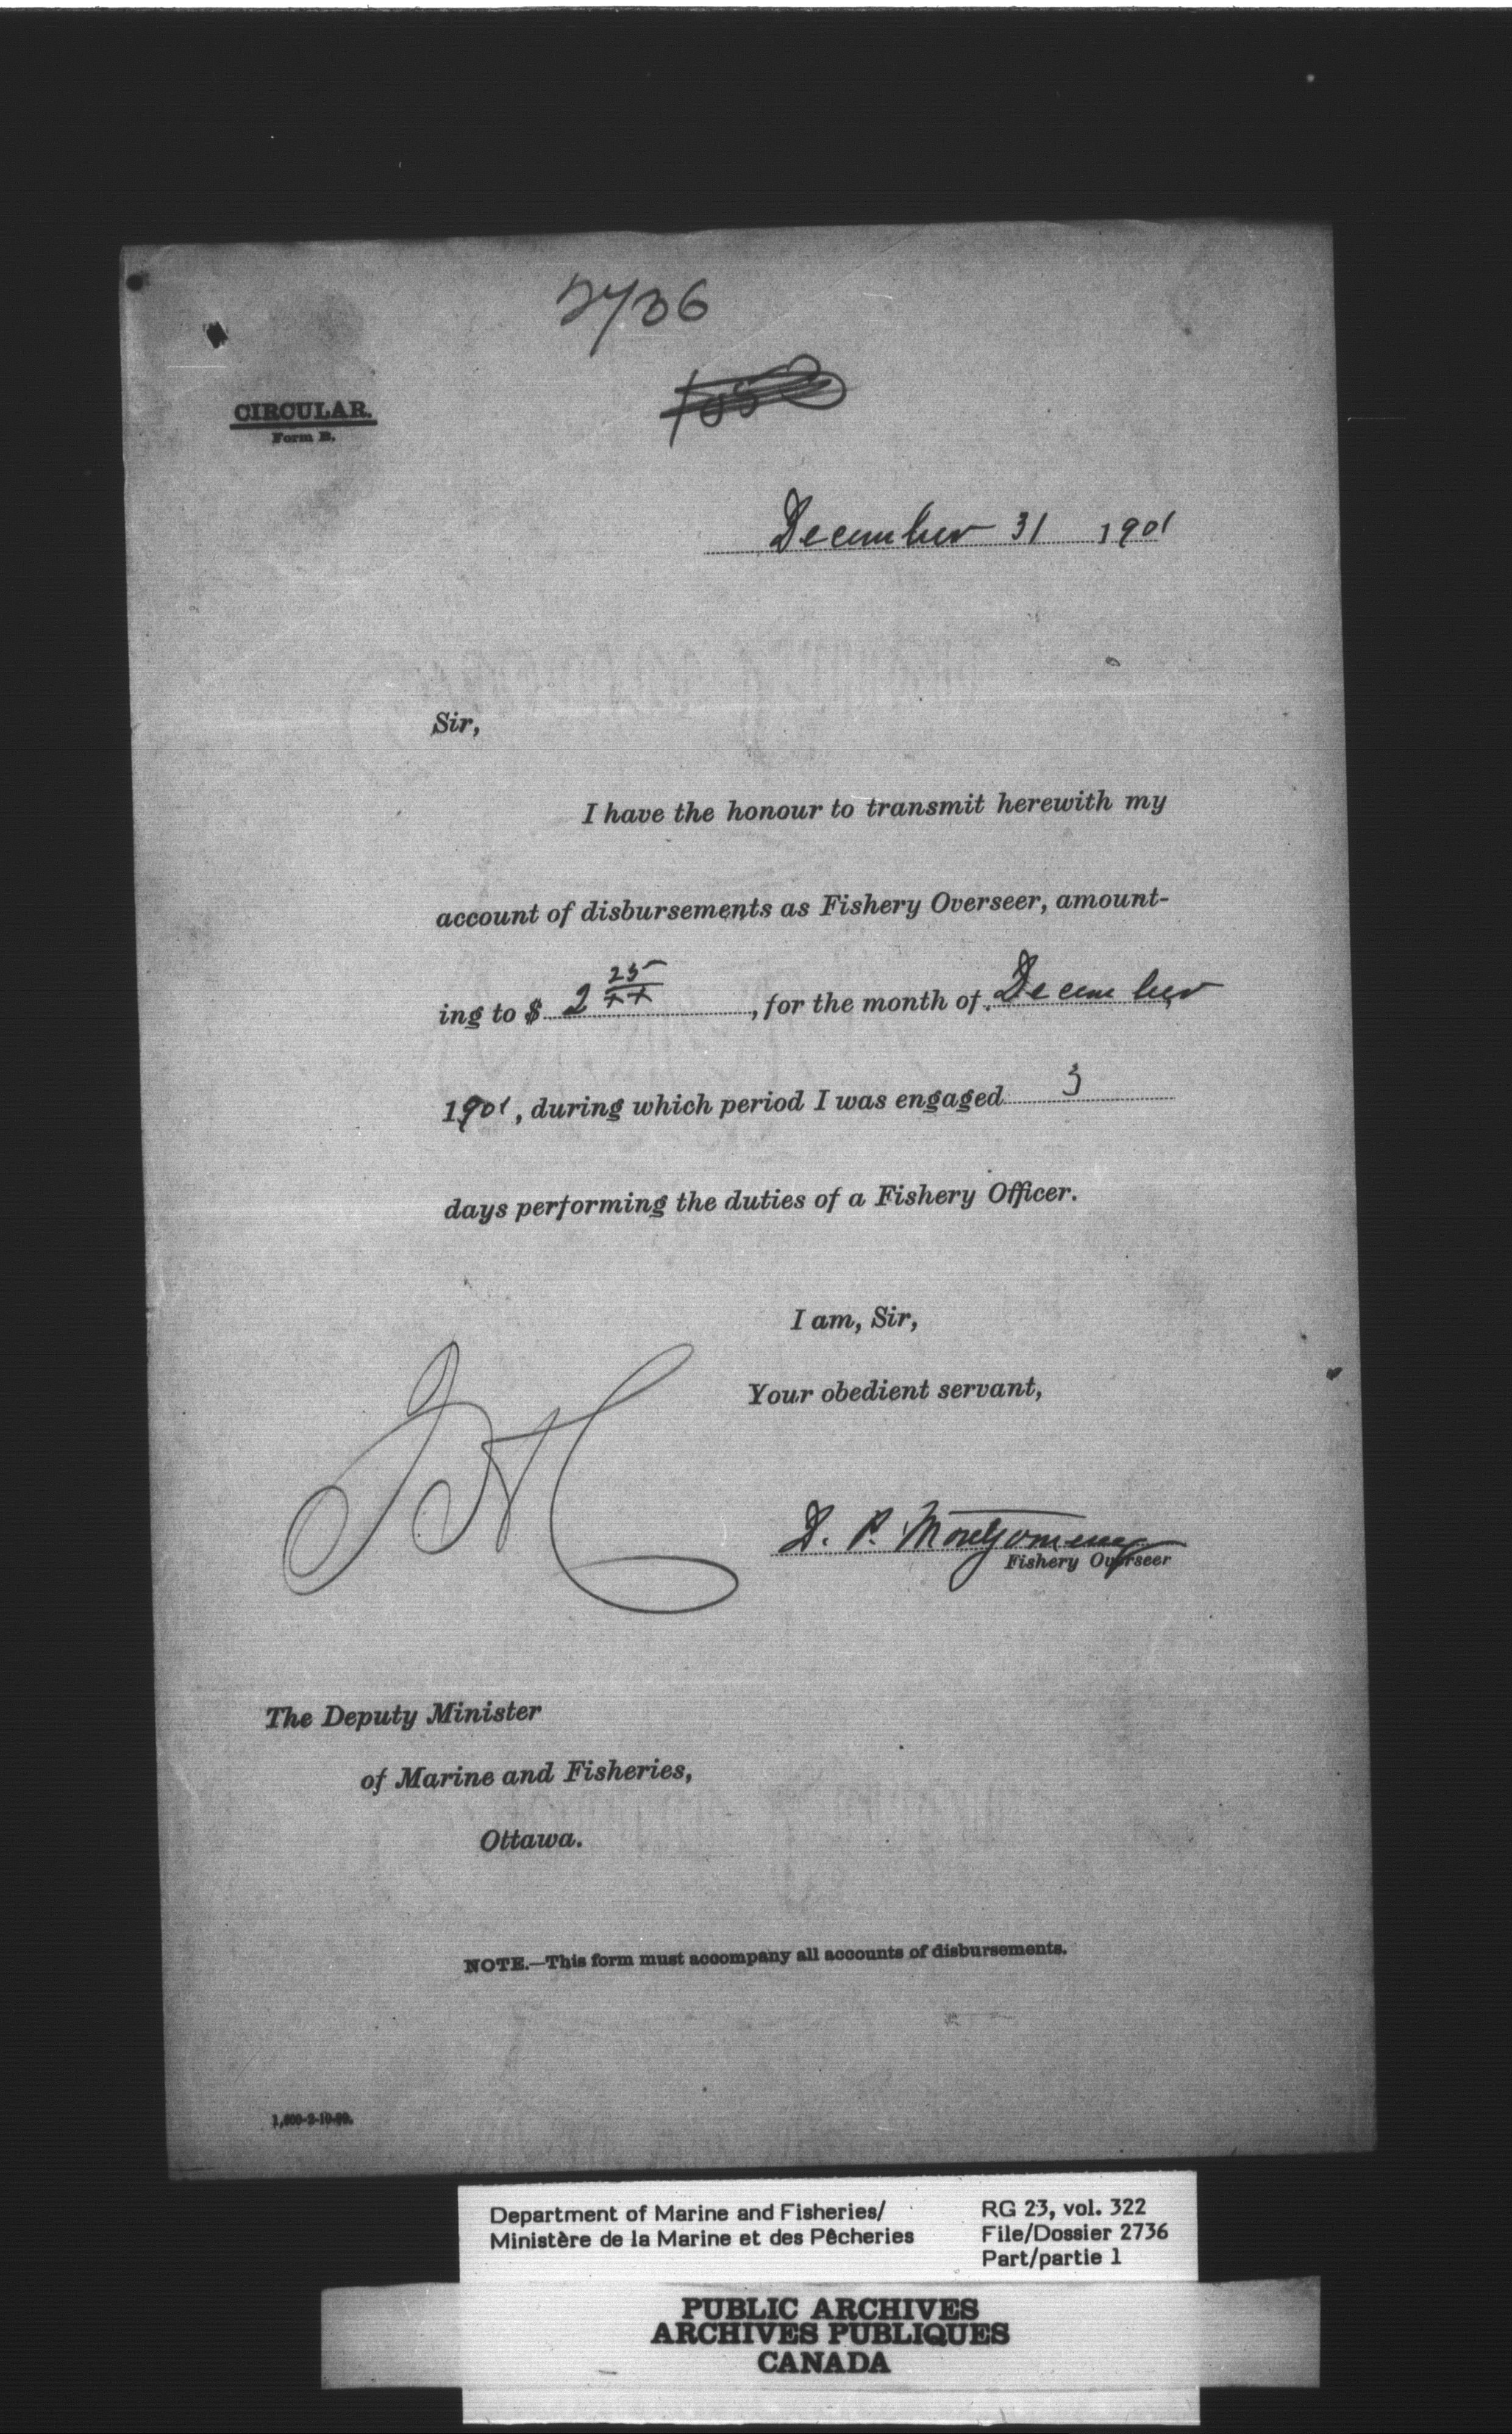 2736
CIRCULAR.
Form B.
December 31 1901
Sir,
I have the honour to transmit herewith my
account of disbursements as Fishery Overseer, amount-
ing to $ 2 25/xx , for the month of December
1901, during which period I was engaged 3
days performing the duties of a Fishery Officer.
I am, Sir,
Your obedient servant,
D. P. Montgomery
Fishery Overseer
The Deputy Minister
of Marine and Fisheries,
Ottawa.
NOTE.—This form must accompany all accounts of disbursements.
Department of Marine and Fisheries/
Ministère de la Marine et des Pêcheries
RG 23, vol. 322
File/Dossier 2736
Part/partie 1
PUBLIC ARCHIVES
ARCHIVES PUBLIQUES
CANADA